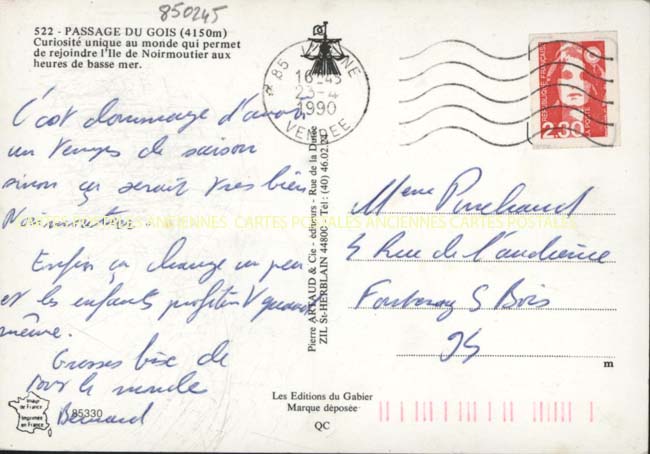 850245
522 - PASSAGE DU GOIS (4150m)
Curiosité unique au monde qui permet
de rejoindre l'Ile de Noirmoutier aux
heures de basse mer.
C'est dommage d'avoir
un temps de saison
sinon ça serait très bien
Noirmoutier.
Enfin ça change un peu
et les enfants profitent quand
même.
Grosses bises de
tout le monde
Bernard
85330
Imprimés
en France
Pierre ARTAUD & Cie - éditeurs - Rue de la Dutée
ZIL St-HERBLAIN 44800 - Tel : (40) 46.02.20
85
16-45
23-4
1990
VENDEE
REPUBLIQUE FRANÇAISE
2,30
LA POSTE
Mme
5 Rue de l'audience
Fontenay S Bois
94
m
Les Editions du Gabier
Marque déposée
QC
CARTES POSTALES ANCIENNES CARTES POSTALES ANCIENNES CARTES POSTALES